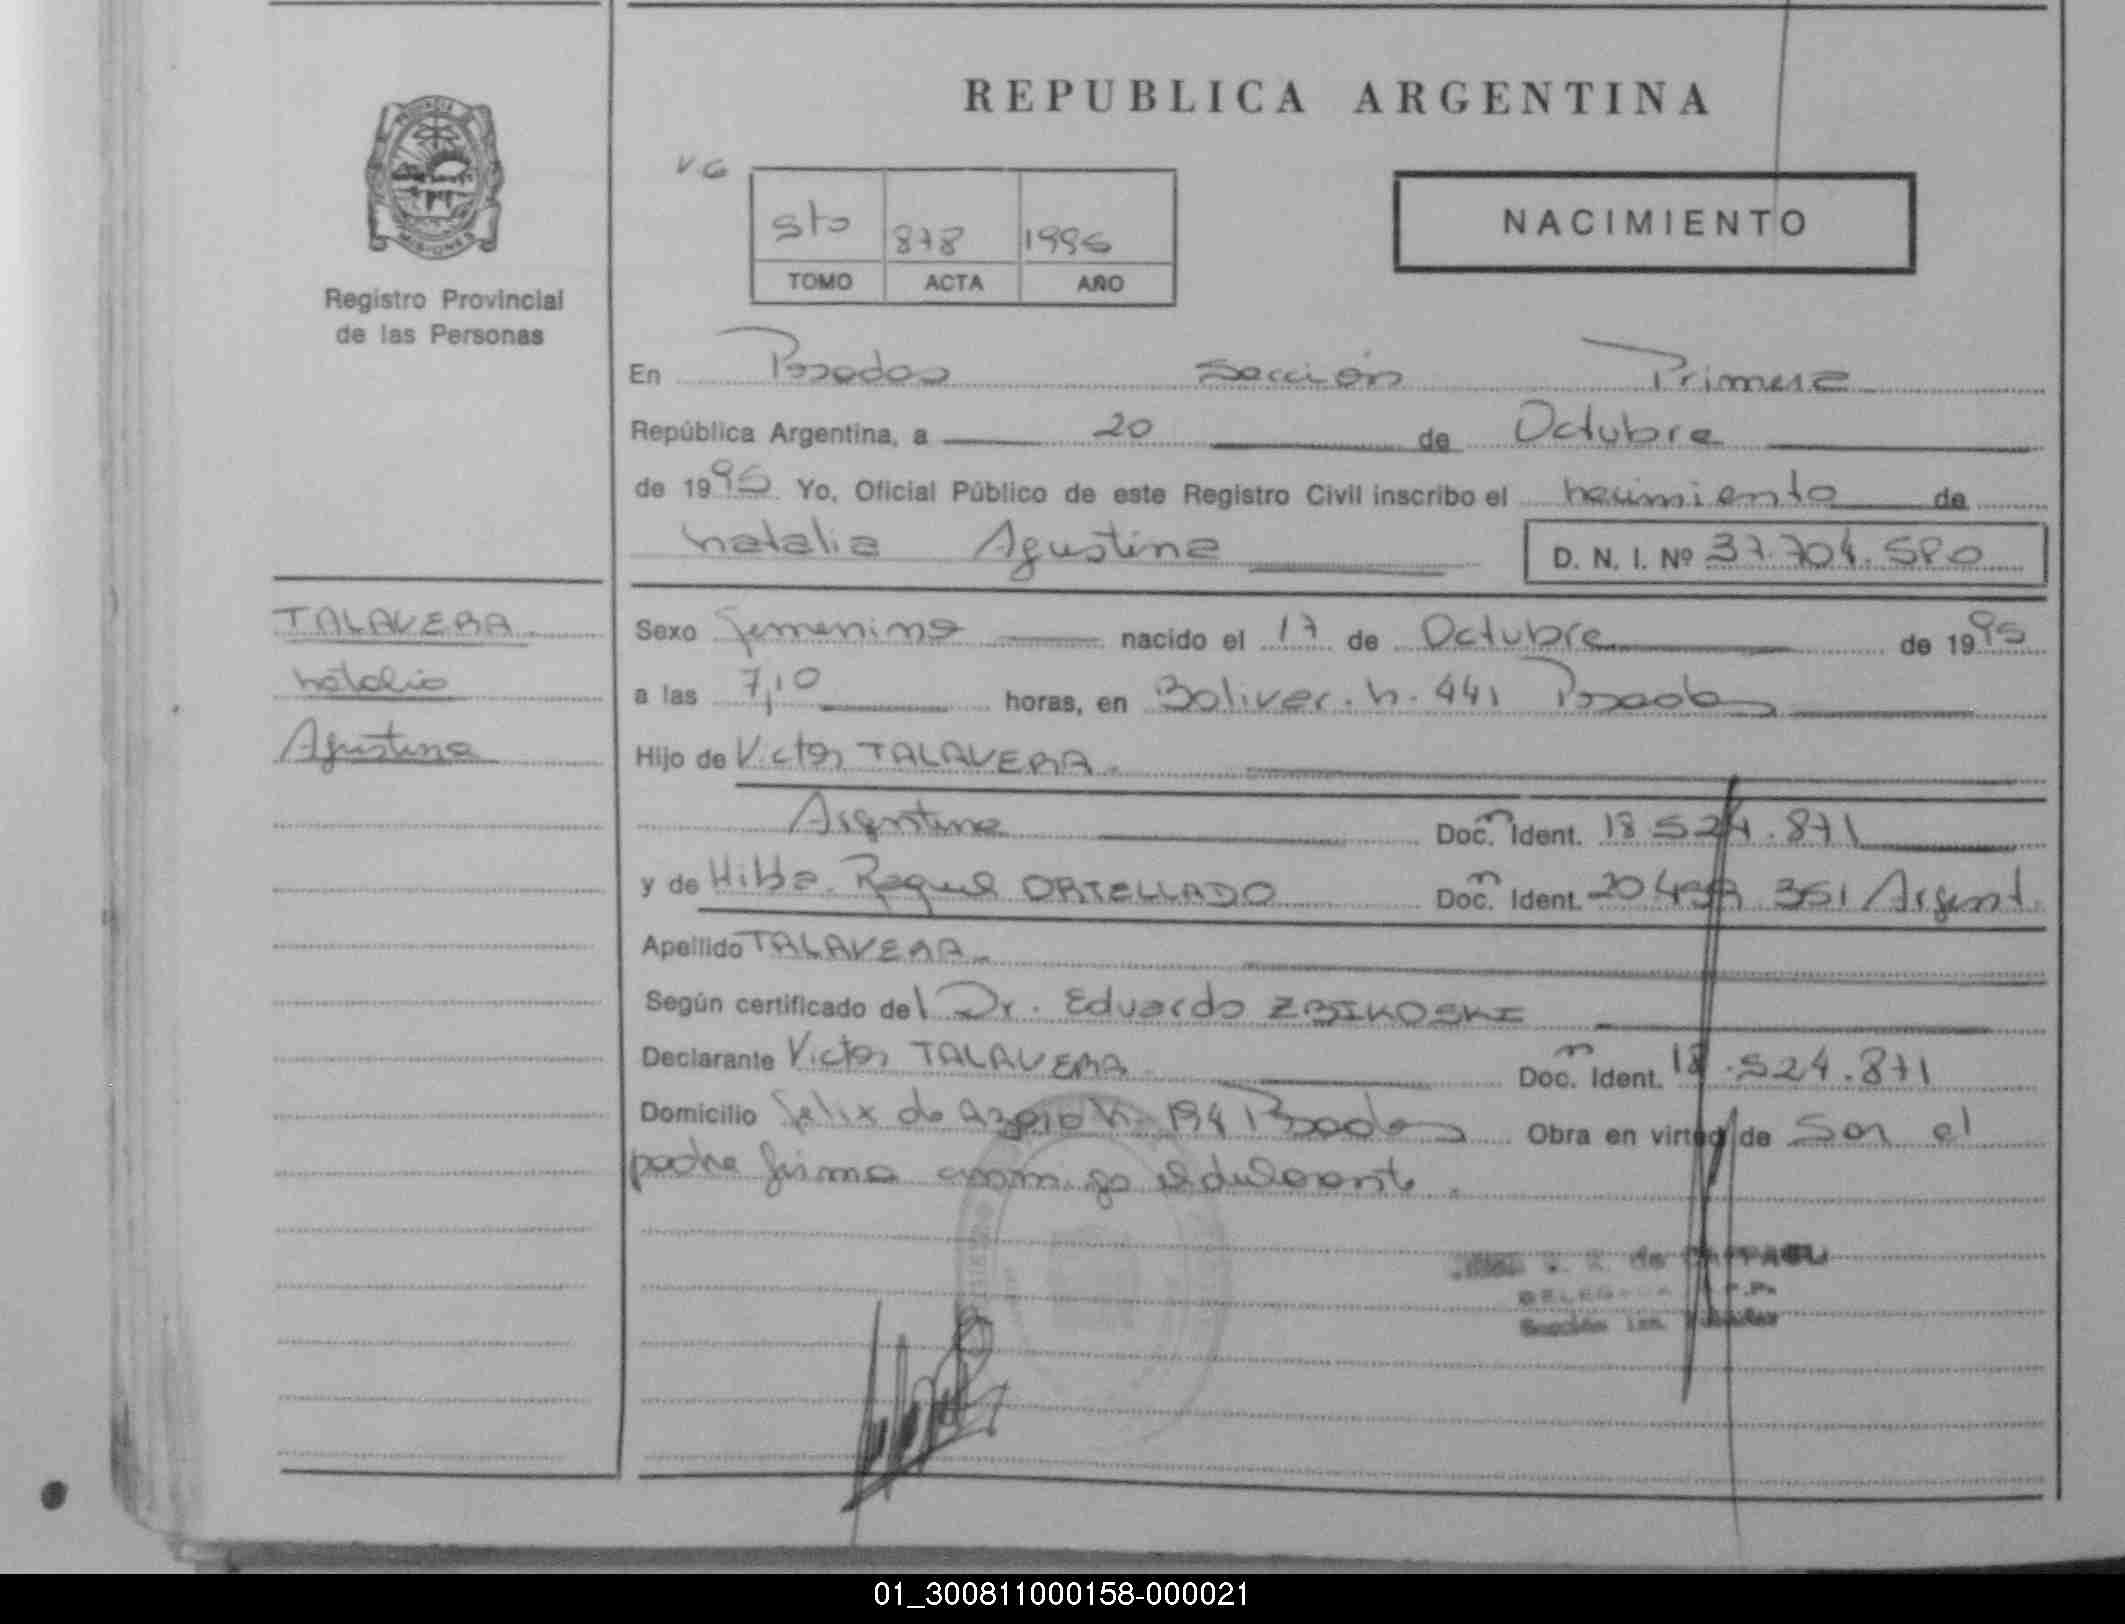 REPUBLICA ARGENTINA
PROVINCIA
MISIONES
Registro Provincial
de las Personas
V.G
5to 878 1995
TOMO ACTA AÑO
NACIMIENTO
En Posadas Sección Primera
República Argentina, a 20 de Octubre
de 1995 Yo, Oficial Público de este Registro Civil inscribo el nacimiento de
Natalia Agustina D. N. I. Nº 37.704.590
TALAVERA
Natalia
Agustina
Sexo femenino nacido el 17 de Octubre de 1995
a las 7,10 horas, en Bolivar. N. 441 Posadas
Hijo de Victor TALAVERA.
Argentina Doc. Ident. 18 524.871
y de Hilda Raquel ORTELLADO Doc. Ident. 351 Argent.
Apellido TALAVERA.
Según certificado del Dr. Eduardo ZBIKOSKI
Declarante Victor TALAVERA Doc. Ident. 18.524.871
Domicilio Felix de Azara N. 194 Posadas Obra en virtud de Ser el
padre firma conmigo el declarante.
de
01_300811000158-000021